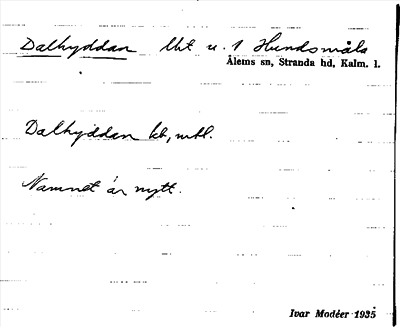 Dalhyddan lht u. 1 Hundsmåla
Ålems sn, Stranda hd, Kalm. l.
Dalhyddan
Namnet är nytt.
Ivar Modéer 1935